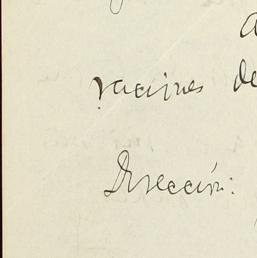 raciones de
Dirección: